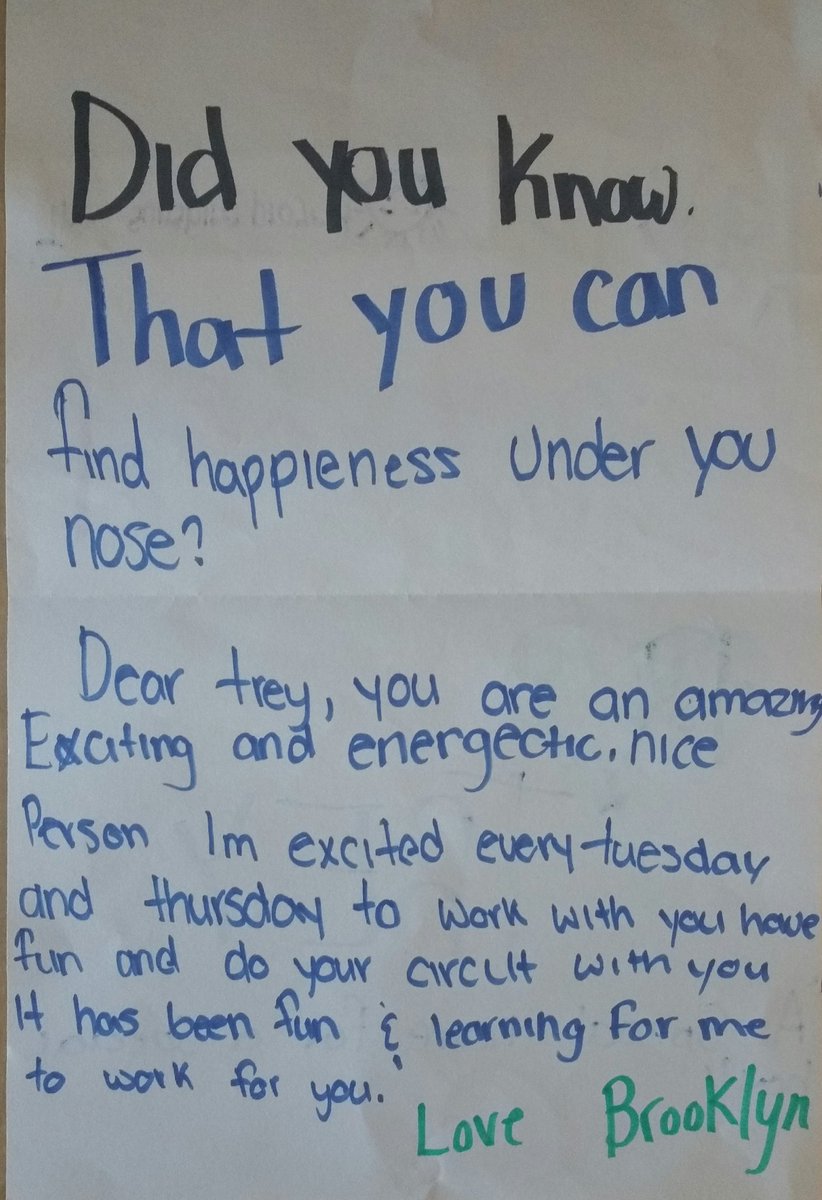 Did you know.
That you can
find happieness under you
nose?
Dear trey, you are an amazing
Exciting and energectic, nice
Person Im excited every tuesday
and thursday to work with you have
fun and do your circuit with you
It has been fun & learning for me
to work for you.
Love Brooklyn